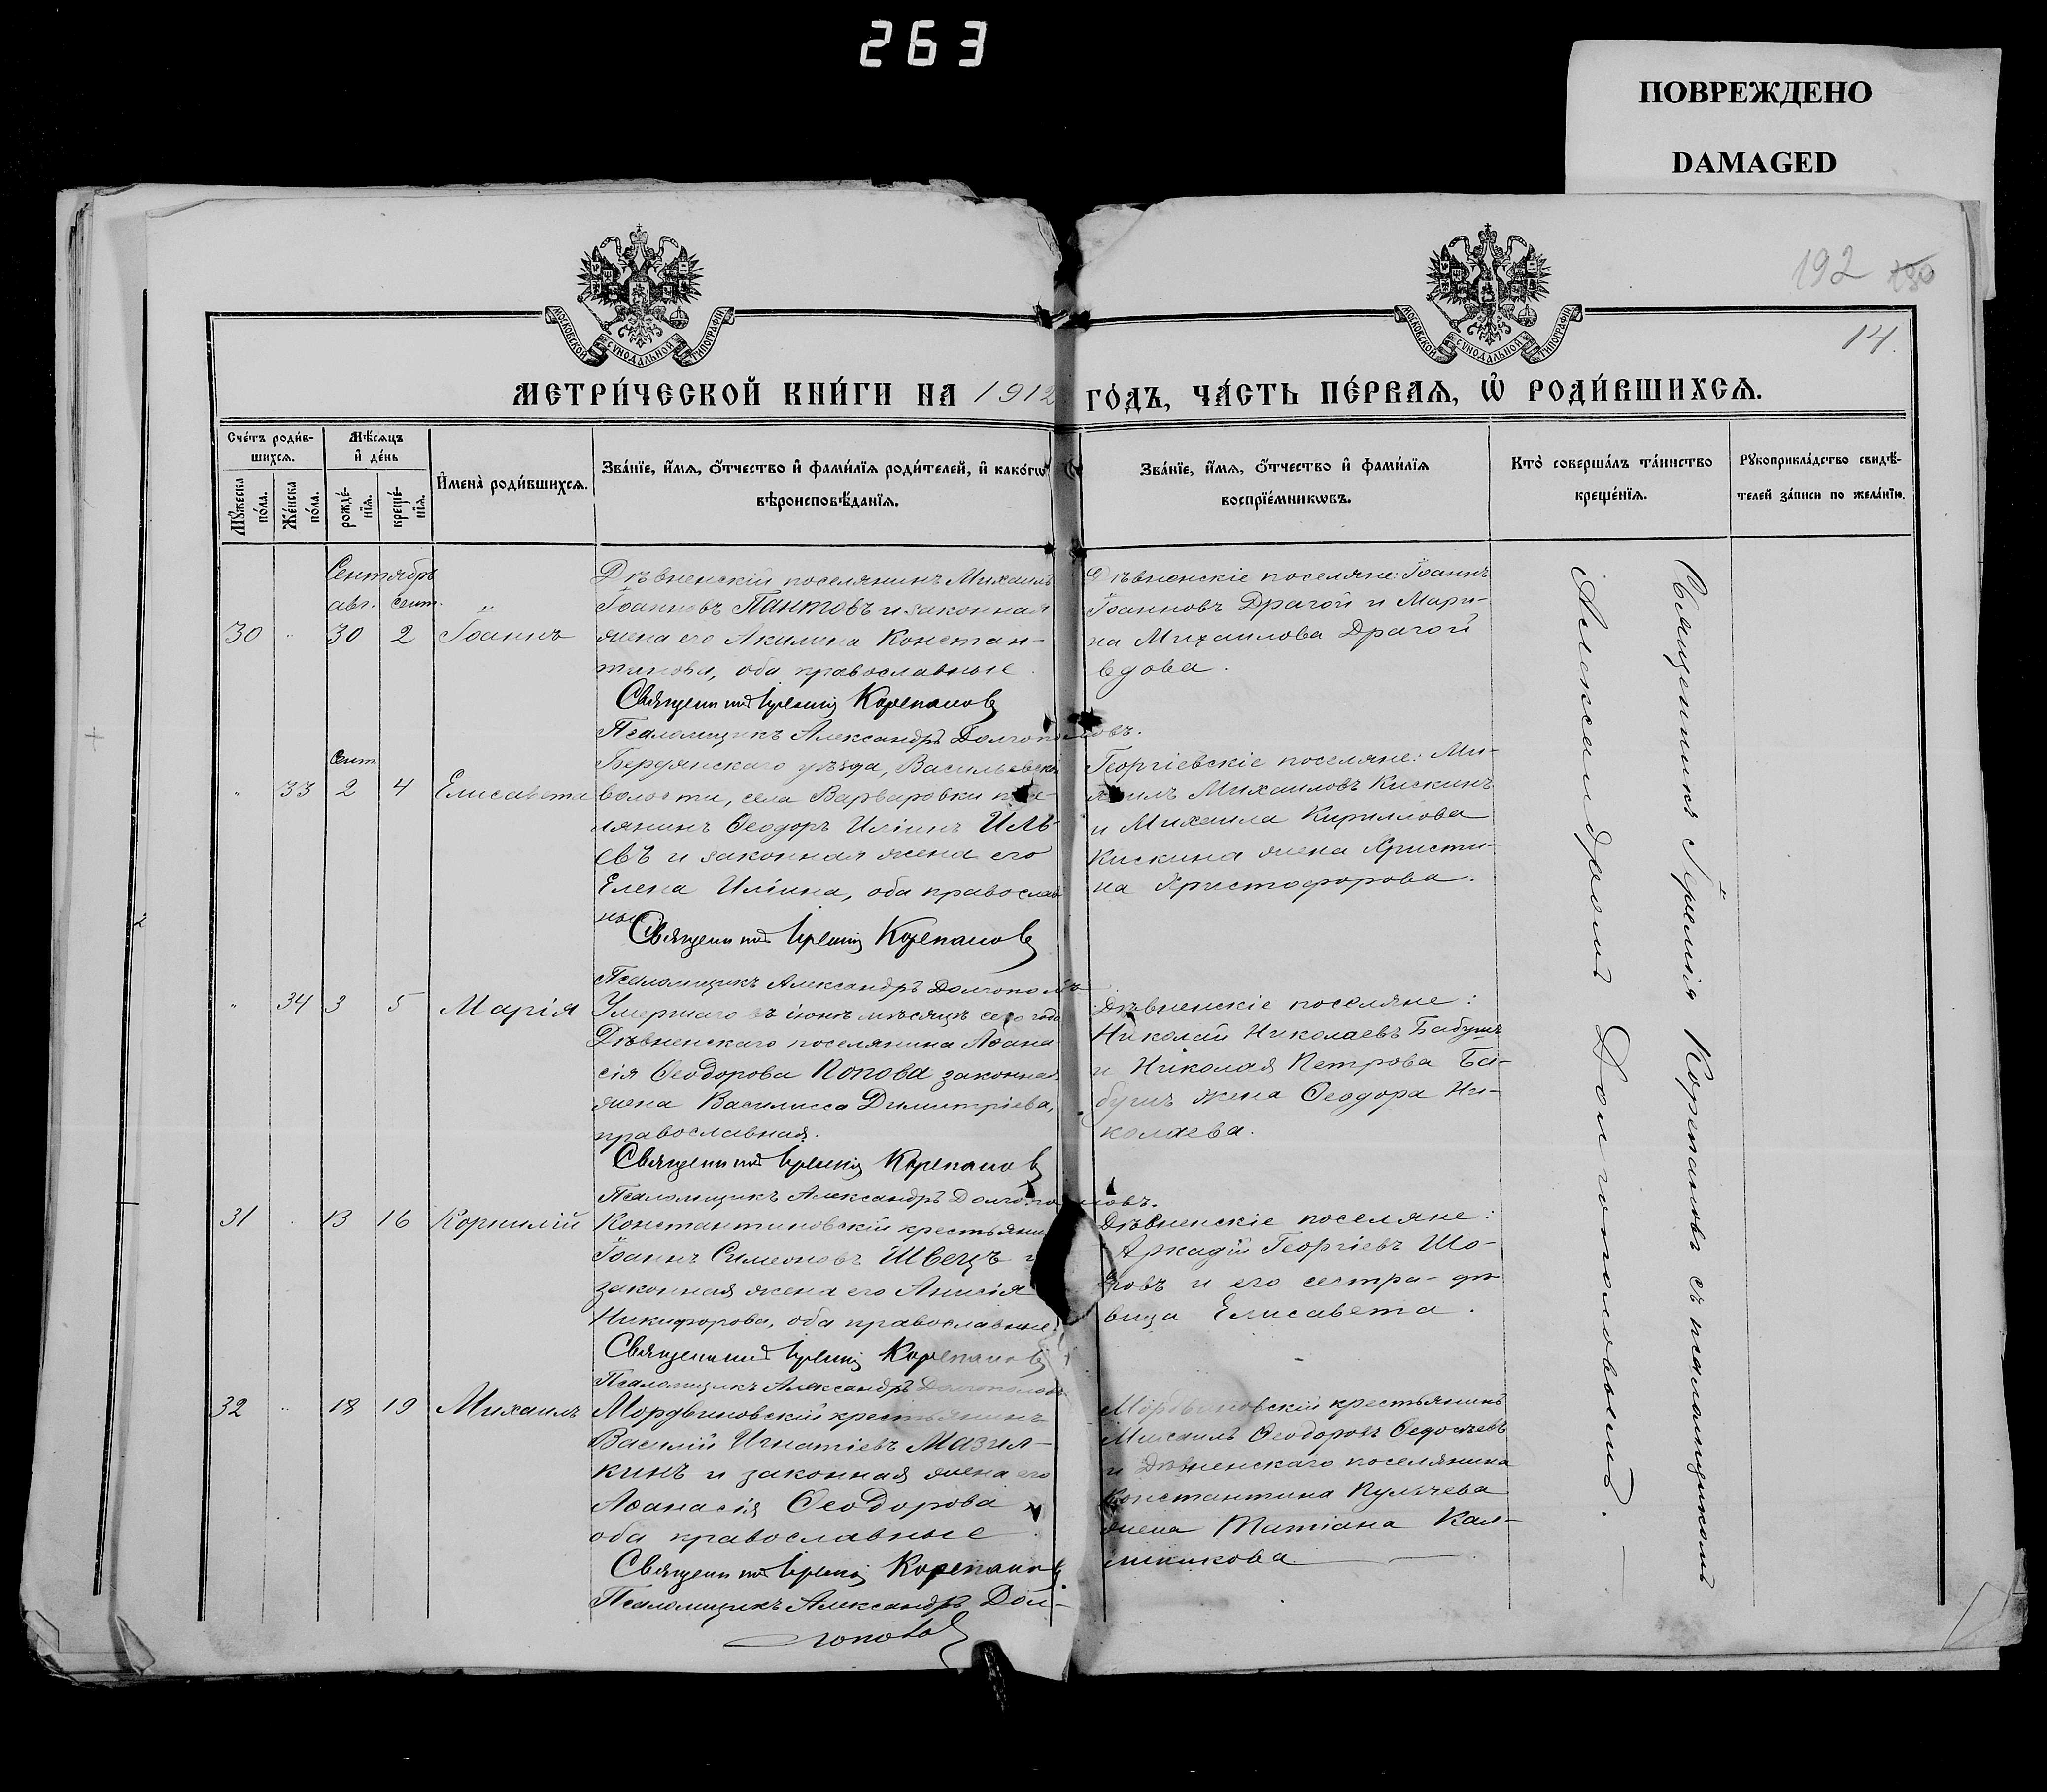 263
ПОВРЕЖДЕНО
DAMAGED
192 190
14.
МОСКОВСКОЙ СѴНОДАЛЬНОЙ ТИПОГРАФІИ
МОСКОВСКОЙ СѴНОДАЛЬНОЙ ТИПОГРАФІИ
МЕТРИ́ЧЕСКОЙ КНИ́ГИ НА 1912 ГО́ДЪ, ЧА́СТЬ ПЕ́РВАѦ, Ѡ҆ РОДИ́ВШИХСѦ.
Сче́тъ роди́в-
шихсѧ.
Мꙋ́жеска по́ла.
Же́нска по́ла.
Мѣ́сѧцъ
и҆ де́нь
рожде́-
нїѧ.
креще́-
нїѧ.
И҆мена̀ роди́вшихсѧ.
Зва́нїе, и҆́мѧ, ѻ҆́тчество и҆ фами́лїѧ роди́телей, и҆ како́гѡ
вѣроисповѣ́данїѧ.
Зва́нїе, и҆́мѧ, ѻ҆́тчество и҆ фами́лїѧ
воспрїе́мникѡвъ.
Кто̀ соверша́лъ та́инство
креще́нїѧ.
Рꙋкоприкла́дство свидѣ́-
телей за́писи по жела́нїю.
Сентябрь
авг. сент.
30 " 30 2 Іоаннъ
Дѣвненскій поселянинъ Михаилъ
Іоанновъ Пантовъ и законная
жена его Акилина Констан-
тинова, оба православные.
Священникъ Іеремія Корепановъ
Псаломщикъ Александръ Долгополовъ.
Дѣвненскіе поселяне: Іоаннъ
Іоанновъ Драгой и Мари-
на Михаилова Драгой
вдова.
Сент.
" 33 2 4 Елисавета
Бердянскаго уѣзда, Васильевской
волости, села Варваровки посе-
лянинъ Ѳеодоръ Иліинъ Иль-
евъ и законная жена его
Елена Иліина, оба православ-
ные
Священникъ Іеремія Корепановъ
Псаломщикъ Александръ Долгополовъ
Георгіевскіе поселяне: Ми-
хаилъ Михаиловъ Кискинъ
и Михаила Кириллова
Кискина жена Христи-
на Христофорова.
" 34 3 5 Марія
Умершаго въ іюнѣ мѣсяцѣ сего года
Дѣвненскаго поселянина Аѳана-
сія Ѳеодорова Попова законная
жена Василисса Димитріева,
православная.
Священникъ Іеремія Корепановъ
Псаломщикъ Александръ Долгополовъ.
Дѣвненскіе поселяне:
Николай Николаевъ Бабушъ
и Николая Петрова Ба-
бушъ жена Ѳеодора Ни-
колаева.
31 " 13 16 Корнилій
Константиновскій крестьянинъ
Іоаннъ Симеоновъ Швецъ и
законная жена его Анисія
Никифорова, оба православные.
Священникъ Іеремія Корепановъ
Псаломщикъ Александръ Долгополовъ
Дѣвненскіе поселяне:
Аркадій Георгіевъ Шо-
повъ и его сестра-дѣ-
вица Елисавета.
32 " 18 19 Михаилъ
Мордвиновскій крестьянинъ
Василій Игнатіевъ Мазил-
кинъ и законная жена его
Аѳанасія Ѳеодорова
оба православные.
Священникъ Іеремія Корепановъ
Псаломщикъ Александръ Дол-
гополовъ
Мордвиновскій крестьянинъ
Михаилъ Ѳеодоровъ Ѳедосѣевъ
и Дѣвненскаго поселянина
Константина Пульчева
жена Татіана Кал-
шникова.
Священникъ Іеремія Корепановъ съ псаломщикомъ
Александромъ Долгополовымъ.